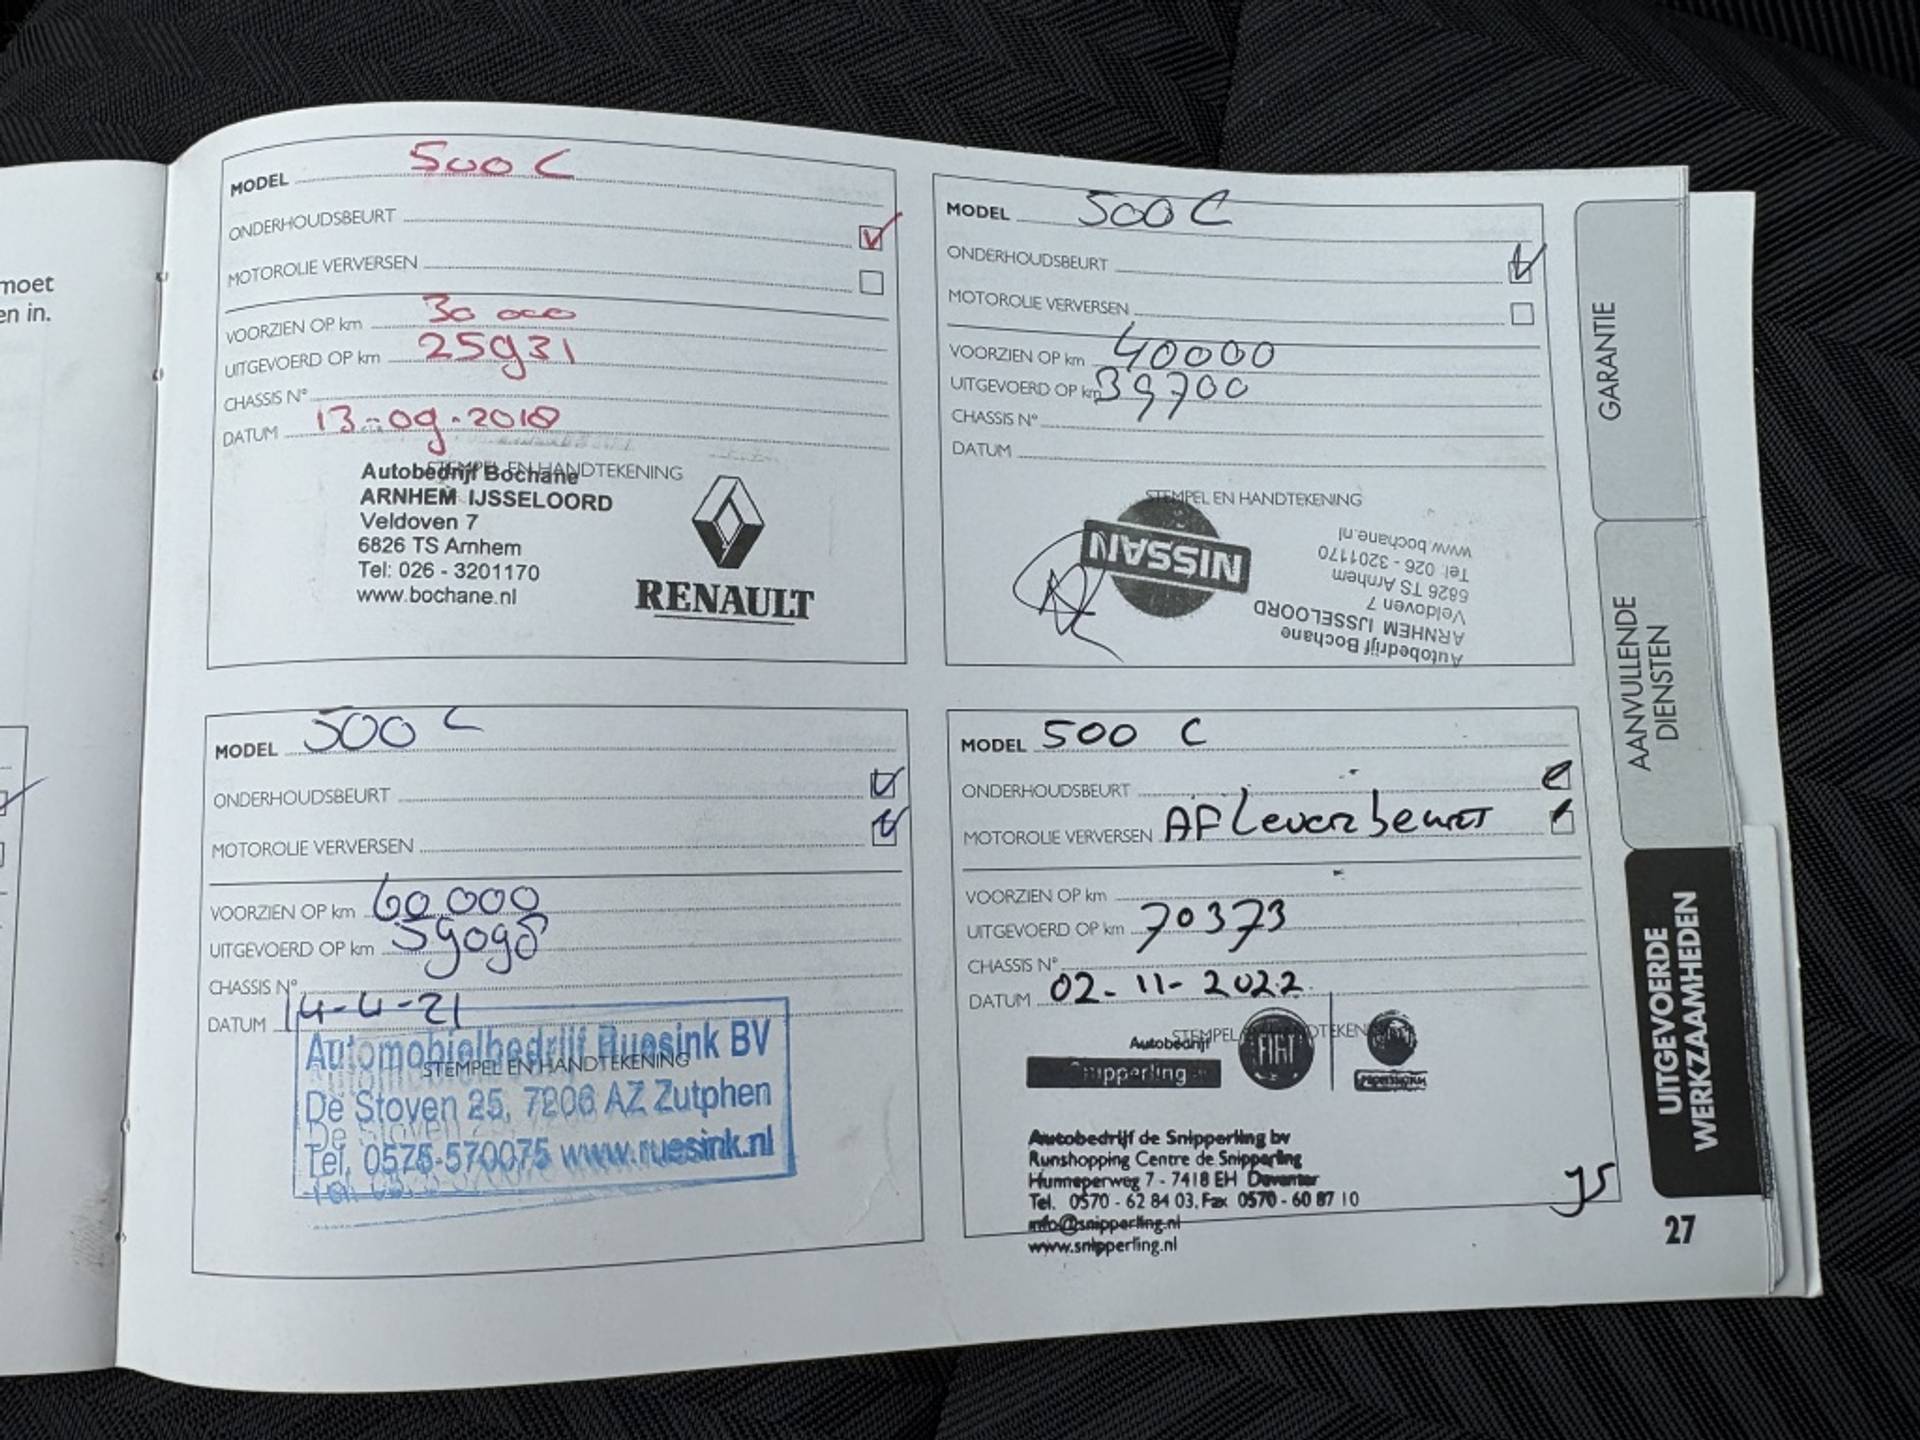 moet
en in.
MODEL 500 C
ONDERHOUDSBEURT
MOTOROLIE VERVERSEN
VOORZIEN OP km 30 000
UITGEVOERD OP km 25931
CHASSIS N°
DATUM 13-09-2018
STEMPEL EN HANDTEKENING
Autobedrijf Bochane
ARNHEM IJSSELOORD
Veldoven 7
6826 TS Arnhem
Tel: 026 - 3201170
www.bochane.nl
RENAULT
MODEL 500 C
ONDERHOUDSBEURT
MOTOROLIE VERVERSEN
VOORZIEN OP km 40000
UITGEVOERD OP km 39700
CHASSIS N°
DATUM
STEMPEL EN HANDTEKENING
NISSAN
Autobedrijf Bochane
ARNHEM IJSSELOORD
Veldoven 7
6826 TS Arnhem
Tel: 026 - 3201170
www.bochane.nl
MODEL 500 C
ONDERHOUDSBEURT
MOTOROLIE VERVERSEN
VOORZIEN OP km 60.000
UITGEVOERD OP km 59098
CHASSIS N°
DATUM 14-4-21
STEMPEL EN HANDTEKENING
Automobielbedrijf Ruesink BV
De Stoven 25, 7206 AZ Zutphen
Tel. 0575-570075 www.ruesink.nl
MODEL 500 C
ONDERHOUDSBEURT
MOTOROLIE VERVERSEN AFleverbeurt
VOORZIEN OP km
UITGEVOERD OP km 70373
CHASSIS N°
DATUM 02-11-2022
STEMPEL EN HANDTEKENING
Autobedrijf
Snipperling
FIAT
PROFESSIONAL
Autobedrijf de Snipperling bv
Runshopping Centre de Snipperling
Hunneperweg 7 - 7418 EH Deventer
Tel. 0570 - 62 84 03, Fax 0570 - 60 87 10
info@snipperling.nl
www.snipperling.nl
GARANTIE
AANVULLENDE
DIENSTEN
UITGEVOERDE
WERKZAAMHEDEN
27